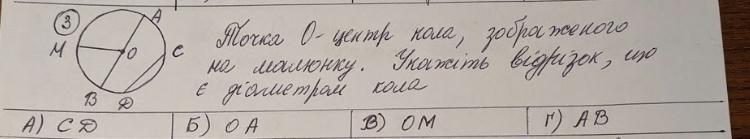 3
A
M
O
C
B
D
Точка О - центр кола, зображеного
на малюнку. Укажіть відрізок, що
є діаметром кола
А) CD Б) OA В) OM Г) AB